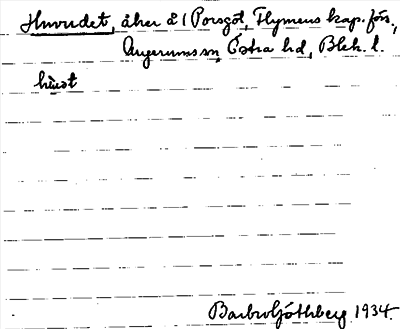 Huvudet, åker å 1 Porsgöl, Flymens kap. förs.,
Augerums sn, Östra hd, Blek. l.
Barbro Göthberg 1934.